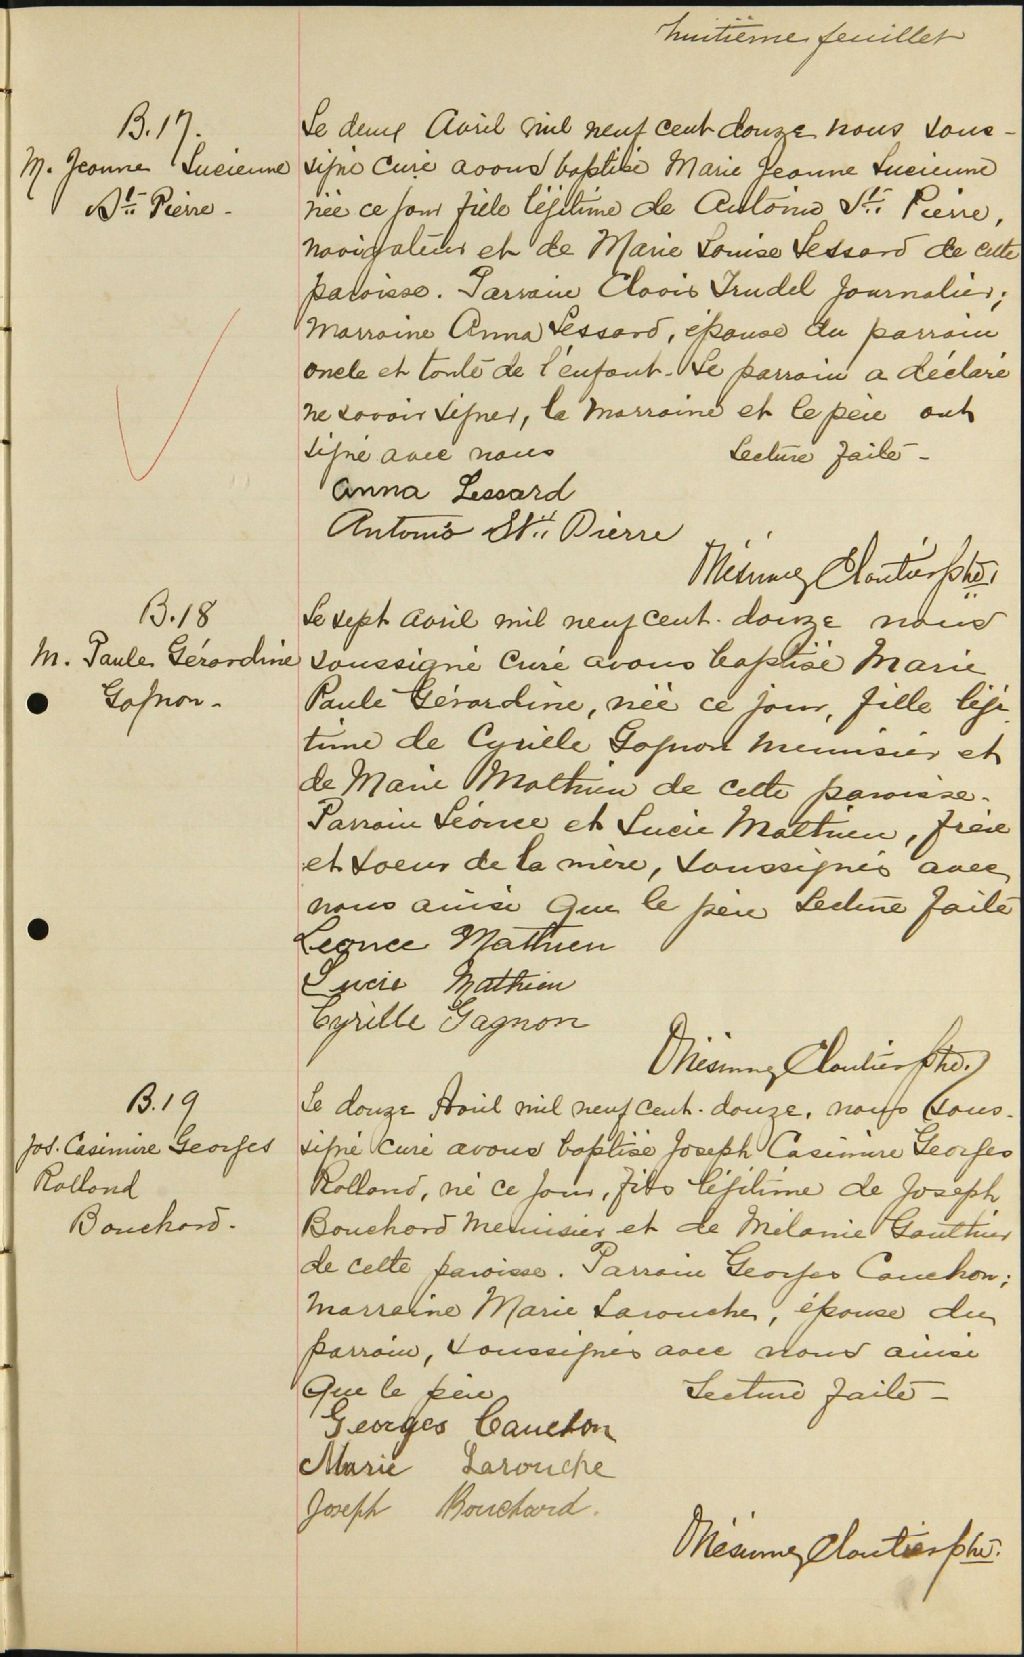 huitième feuillet
B.17.
M. Jeanne Lucienne
St. Pierre -
Le deux Avril mil neuf cent douze nous sous-
signé curé avons baptisé Marie Jeanne Lucienne
née ce jour fille légitime de Antonio St. Pierre,
navigateur et de Marie Louise Lessard de cette
paroisse. Parrain Clovis Trudel journalier;
Marraine Anna Lessard, épouse du parrain
oncle et tante de l'enfant. Le parrain a déclaré
ne savoir signer, la marraine et le père ont
signé avec nous Lecture faite -
Anna Lessard
Antonio St. Pierre
Cloutier ptre.
B.18
M. Paule Gérardine
Gagnon -
Le sept avril mil neuf cent douze nous
soussigné curé avons baptisé Marie
Paule Gérardine, née ce jour, fille légi
time de Cyrille Gagnon menuisier et
de Marie Mathieu de cette paroisse.
Parrain Léonce et Lucie Mathieu, frère
et soeur de la mère, soussignés avec
nous ainsi que le père Lecture faite
Leonce Mathieu
Lucie Mathieu
Cyrille Gagnon
Cloutier ptre.
B.19
Jos. Casimire Georges
Rolland
Bouchard -
Le douze Avril mil neuf cent douze, nous sous-
signé curé avons baptisé Joseph Casimire Georges
Rolland, né ce jour, fils légitime de Joseph
Bouchard menuisier et de Mélanie Gauthier
de cette paroisse. Parrain Georges Cauchon;
marraine Marie Larouche, épouse du
parrain, soussignés avec nous ainsi
que le père Lecture faite -
Georges Cauchon
Marie Larouche
Joseph Bouchard.
Cloutier ptre.